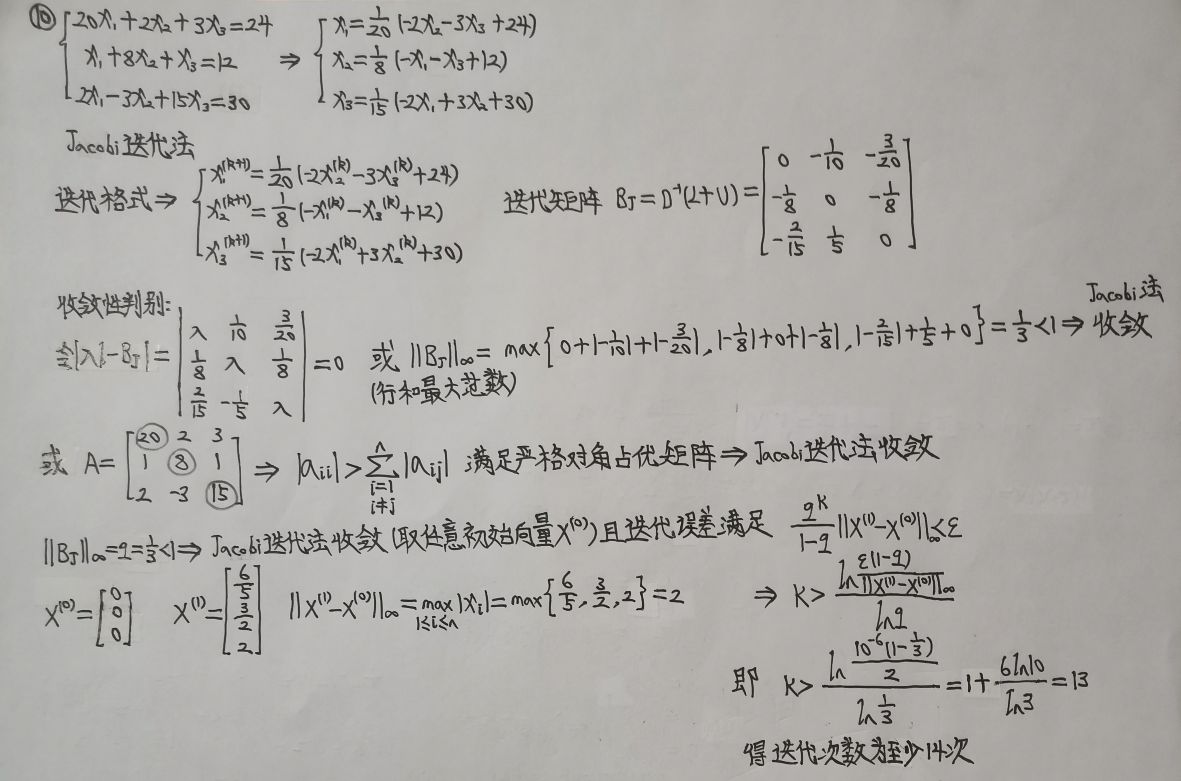 ⑩ {20x₁+2x₂+3x₃=24 ⇒ {x₁=1/20(-2x₂-3x₃+24)
x₁+8x₂+x₃=12 x₂=1/8(-x₁-x₃+12)
2x₁-3x₂+15x₃=30 x₃=1/15(-2x₁+3x₂+30)
Jacobi迭代法
迭代格式⇒ {x₁^(k+1)=1/20(-2x₂^(k)-3x₃^(k)+24)
x₂^(k+1)=1/8(-x₁^(k)-x₃^(k)+12)
x₃^(k+1)=1/15(-2x₁^(k)+3x₂^(k)+30)
迭代矩阵 B_J=D⁻¹(L+U)=[0 -1/10 -3/20
-1/8 0 -1/8
-2/15 1/5 0]
收敛性判别:
令|λI-B_J|=|λ 1/10 3/20
1/8 λ 1/8
2/15 -1/5 λ|=0 或 ||B_J||∞=max{0+|-1/10|+|-3/20|, |-1/8|+0+|-1/8|, |-2/15|+1/5+0}=1/3<1⇒ Jacobi法收敛
(行和最大范数)
或 A=[20 2 3
1 8 1
2 -3 15] ⇒ |aᵢᵢ|>∑_{i=1, i≠j}^{n}|aᵢⱼ| 满足严格对角占优矩阵⇒Jacobi迭代法收敛
||B_J||∞=q=1/3<1⇒ Jacobi迭代法收敛(取任意初始向量X^(0))且迭代误差满足 q^k/(1-q)||X^(1)-X^(0)||∞<ε
X^(0)=[0 0 0] X^(1)=[6/5 3/2 2] ||X^(1)-X^(0)||∞=max_{1≤i≤n}|xᵢ|=max{6/5, 3/2, 2}=2 ⇒ K>ln(ε(1-q)/||X^(1)-X^(0)||∞)/ln q
即 K>ln(10⁻⁶(1-1/3)/2)/ln(1/3)=1+6ln10/ln3=13
得迭代次数为至少14次